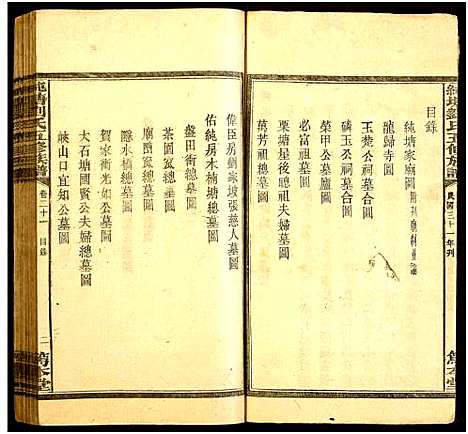 純塘劉氏五修族譜
民國三十一年刊
篤本堂
目錄
純塘家廟圖
龍歸寺圖
玉楚公祠合圖
磷玉公祠合圖
榮甲公墓圖
必富祖墓圖
栗塘星後聰祖夫婦墓圖
萬芳祖墓圖
偉臣房劉家坡張慈人墓圖
佑純房木楠塘總墓圖
盤田衝總墓圖
茶園總墓圖
廟園坳總墓圖
漿水塘總墓圖
賀家衝光如公墓圖
大石塘國賢公夫婦總墓圖
峽山口宜知公墓圖
純塘劉氏五修族譜
卷二十一
目錄
二
篤本堂